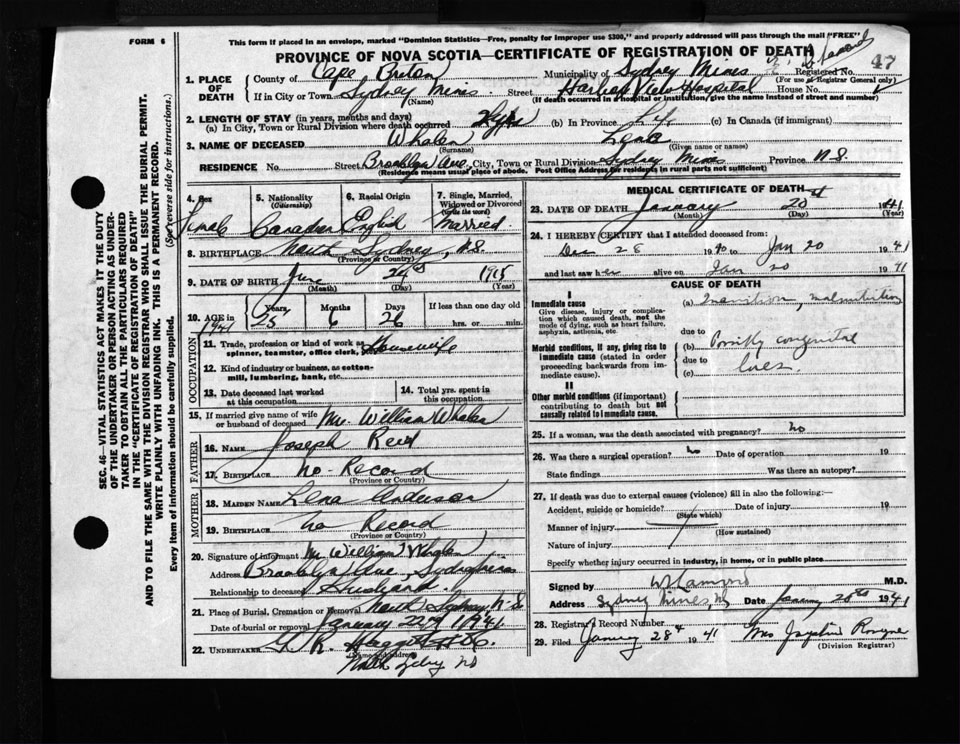 FORM 6
This form if placed in an envelope, marked "Dominion Statistics—Free, penalty for improper use $300," and properly addressed will pass through the mail "FREE"
PROVINCE OF NOVA SCOTIA—CERTIFICATE OF REGISTRATION OF DEATH
1. PLACE OF DEATH County of Cape Breton Municipality of Sydney Mines Registered No. 47
(For use of Registrar General only)
If in City or Town Sydney Mines Street Harbor View Hospital House No.
(Name) (If death occurred in a hospital or institution, give the name instead of street and number)
2. LENGTH OF STAY (in years, months and days)
(a) In City, Town or Rural Division where death occurred (b) In Province (c) In Canada (if immigrant)
3. NAME OF DECEASED Whalen Lena
(Surname) (Given name or names)
RESIDENCE No. Street Brooklyn Ave. City, Town or Rural Division Sydney Mines Province N.S.
(Residence means usual place of abode. Post Office Address for residents in rural parts not sufficient)
4. Sex 5. Nationality (Citizenship) 6. Racial Origin 7. Single, Married, Widowed or Divorced (write the word)
Female Canadian English Married
8. BIRTHPLACE North Sydney, N.S.
(Province or Country)
9. DATE OF BIRTH June 24 1915
(Month) (Day) (Year)
10. AGE in Years Months Days If less than one day old
1941 25 6 26 hrs. or min.
OCCUPATION
11. Trade, profession or kind of work as spinner, teamster, office clerk, Housewife
12. Kind of industry or business, as cotton-mill, lumbering, bank, etc.
13. Date deceased last worked at this occupation 14. Total yrs. spent in this occupation
15. If married give name of wife or husband of deceased Mr. William Whalen
FATHER
16. Name Joseph Reid
17. Birthplace No Record
(Province or Country)
MOTHER
18. Maiden Name Lena Anderson
19. Birthplace No Record
(Province or Country)
20. Signature of informant Mr William Whalen
Address Brooklyn Ave Sydney Mines
Relationship to deceased Husband
21. Place of Burial, Cremation or Removal North Sydney N.S.
Date of burial or removal January 22nd 1941
22. UNDERTAKER
(Name and address)
North Sydney NS
MEDICAL CERTIFICATE OF DEATH
23. DATE OF DEATH January 20 1941
(Month) (Day) (Year)
24. I HEREBY CERTIFY that I attended deceased from:
Dec 28 1940 to Jan 20 1941
and last saw her alive on Jan 20 1941
CAUSE OF DEATH
I
Immediate cause
Give disease, injury or complication which caused death, not the mode of dying, such as heart failure, asphyxia, asthenia, etc.
(a) Inanition, malnutrition
due to
Morbid conditions, if any, giving rise to immediate cause (stated in order proceeding backwards from immediate cause).
(b) congenital
due to
(c) lues.
II
Other morbid conditions (if important) contributing to death but not causally related to immediate cause.
25. If a woman, was the death associated with pregnancy? no
26. Was there a surgical operation? no Date of operation 19
State findings Was there an autopsy?
27. If death was due to external causes (violence) fill in also the following:—
Accident, suicide or homicide? Date of injury 19
(State which)
Manner of injury
(How sustained)
Nature of injury
Specify whether injury occurred in industry, in home, or in public place
Signed by M.D.
Address Sydney Mines, NS Date January 20th 1941
28. Registrar's Record Number
29. Filed January 28 1941 Mrs
(Division Registrar)
SEC. 46—VITAL STATISTICS ACT MAKES IT THE DUTY
OF THE UNDERTAKER OR PERSON ACTING AS UNDERTAKER
TO OBTAIN ALL THE PARTICULARS REQUIRED
IN THE "CERTIFICATE OF REGISTRATION OF DEATH"
AND TO FILE THE SAME WITH THE DIVISION REGISTRAR WHO SHALL ISSUE THE BURIAL PERMIT.
WRITE PLAINLY WITH UNFADING INK. THIS IS A PERMANENT RECORD.
Every item of information should be carefully supplied. (See reverse side for instructions.)